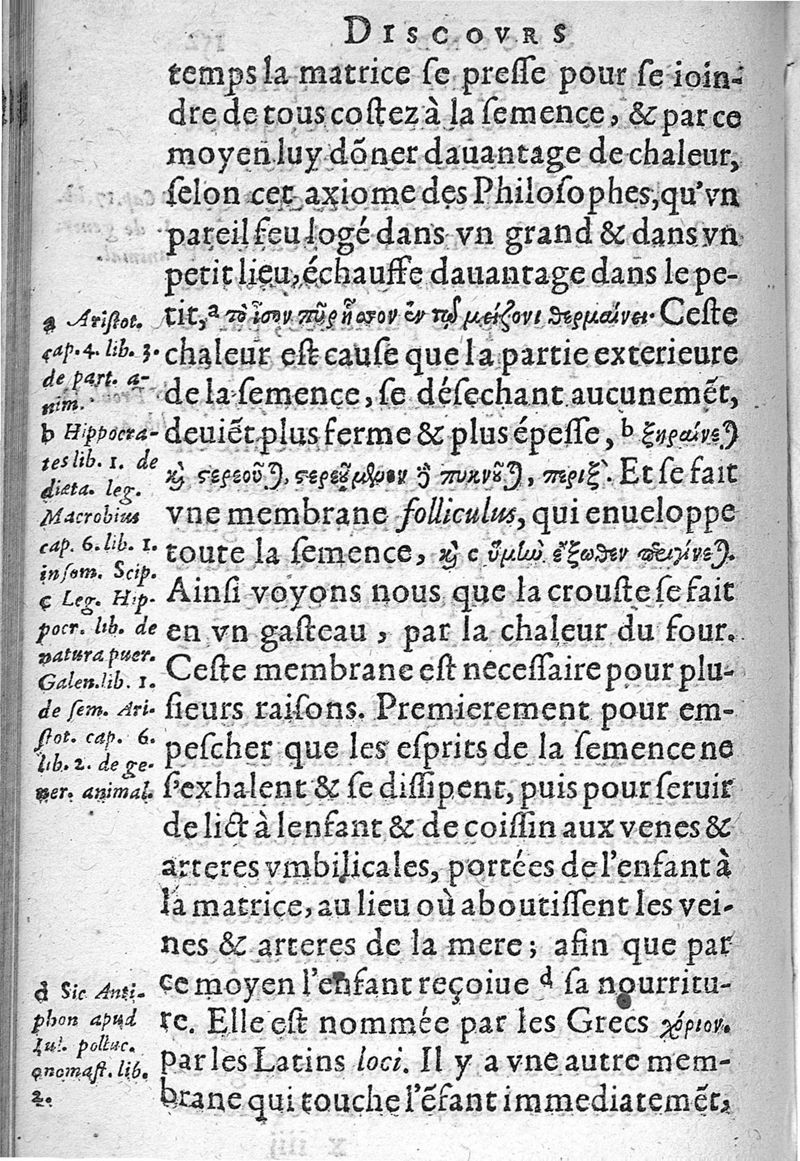 DISCOVRS
temps la matrice se presse pour se ioin-
dre de tous costez à la semence, & par ce
moyen luy dõner dauantage de chaleur,
selon cet axiome des Philosophes, qu'vn
pareil feu logé dans vn grand & dans vn
petit lieu, échauffe dauantage dans le pe-
tit, a τὸ ἶσον πῦρ ἧττον ἐν τῷ μείζονι θερμαίνει. Ceste
chaleur est cause que la partie exterieure
de la semence, se désechant aucunemẽt,
deuiẽt plus ferme & plus épesse, b ξηραίνεται
καὶ στερεοῦται, στερεούμενον δὲ πυκνοῦται, πέριξ. Et se fait
vne membrane folliculus, qui enueloppe
toute la semence, καὶ c ὑμὴν ἔξωθεν περιγίνεται.
Ainsi voyons nous que la crouste se fait
en vn gasteau, par la chaleur du four.
Ceste membrane est necessaire pour plu-
sieurs raisons. Premierement pour em-
pescher que les esprits de la semence ne
s'exhalent & se dissipent, puis pour seruir
de lict à lenfant & de coissin aux venes &
arteres vmbilicales, portées de l'enfant à
la matrice, au lieu où aboutissent les vei-
nes & arteres de la mere; afin que par
ce moyen l'enfant reçoiue d sa nourritu-
re. Elle est nommée par les Grecs χόριον.
par les Latins loci. Il y a vne autre mem-
brane qui touche l'ẽfant immediatemẽt,
a Aristot.
cap. 4. lib. 3.
de part. a-
nim.
b Hippocra-
tes lib. 1. de
diæta. leg.
Macrobius
cap. 6. lib. 1.
in som. Scip.
c Leg. Hip-
pocr. lib. de
natura puer.
Galen. lib. 1.
de sem. Ari-
stot. cap. 6.
lib. 2. de ge-
ner. animal.
d Sic Anti-
phon apud
Iul. polluc.
onomast. lib.
2.